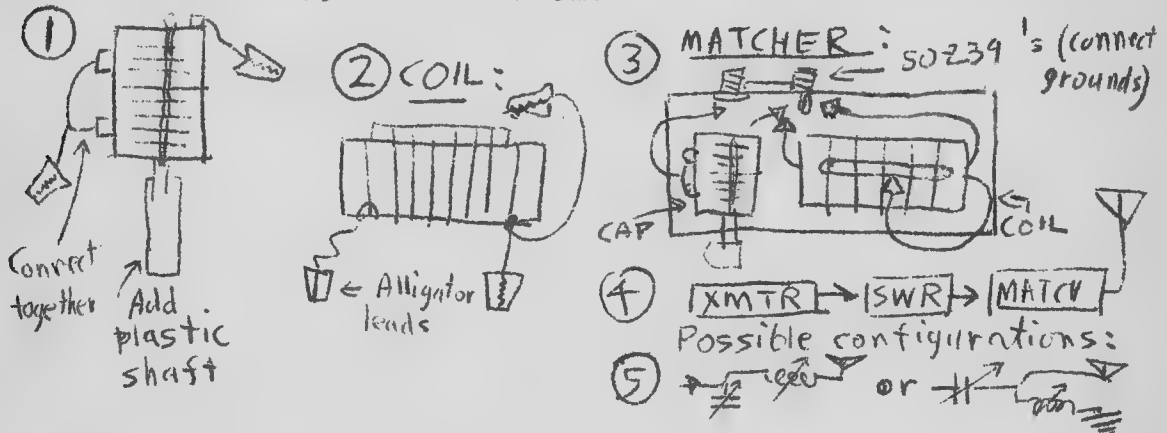 ①
Connect
together
Add
plastic
shaft
② COIL:
← Alligator
leads
③ MATCHER: SO239's (connect
grounds)
CAP
COIL
④ XMTR → SWR → MATCH
Possible configurations:
⑤ or